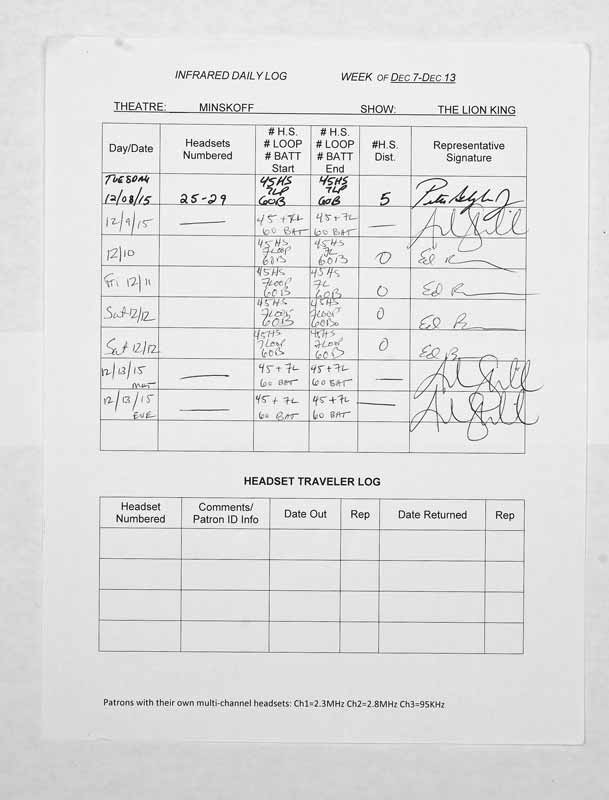 INFRARED DAILY LOG WEEK OF DEC 7-DEC 13
THEATRE: MINSKOFF SHOW: THE LION KING
Day/Date Headsets Numbered # H.S. # LOOP # BATT Start # H.S. # LOOP # BATT End #H.S. Dist. Representative Signature
TUESDAY 12/08/15 25-29 45HS 7LP 60B 45HS 7LP 60B 5
12/9/15 — 45 + 7L 60 BAT 45 + 7L 60 BAT —
12/10 45HS 7LOOP 60B 45HS 7L 60B 0 Ed
Fri 12/11 45HS 7LOOP 60B 45HS 7L 60B 0 Ed
Sat 12/12 45HS 7LOOP 60B 45HS 7LOOP 60B 0 Ed
Sat 12/12 45HS 7LOOP 60B 45HS 7LOOP 60B 0 Ed
12/13/15 MAT — 45 + 7L 60 BAT 45 + 7L 60 BAT —
12/13/15 EVE — 45 + 7L 60 BAT 45 + 7L 60 BAT —
HEADSET TRAVELER LOG
Headset Numbered Comments/ Patron ID Info Date Out Rep Date Returned Rep
Patrons with their own multi-channel headsets: Ch1=2.3MHz Ch2=2.8MHz Ch3=95KHz